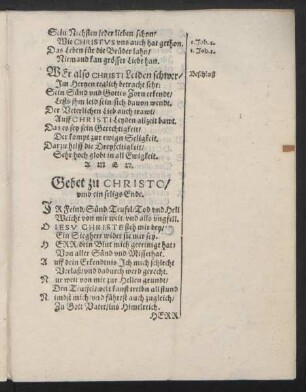 Sein Nechsten jeder lieben schon/
Wie CHRISTVS vns auch hat gethon. 1. Joh. 2.
Das Leben für die Brüder lahn/ 1. Joh. 2.
Niemand kan grösser Lieb han.
WEr also CHRISTI Leiden schwer/ Beschluß
Im Hertzen täglich betracht sehr:
Sein Sünd vnd Gottes Zorn erkendt/
Leßt jhm leid sein sich dauon wendt.
Der Veterlichen Lieb auch trawt/
Auff CHRISTI Leyden allzeit bawt.
Das es sey sein Gerechtigkeit/
Der kompt zur ewign Seligkeit.
Darzu hilfft die Dreyfeltigkeit/
Sehr hoch globt in all Ewigkeit.
A M E N.
Gebet zu CHRISTO/
vmb ein seligs Ende.
IR Feind/ Sünd/ Teufel/ Tod vnd Hell
Weicht von mir weit/ vnd alls vngfell.
O IESV CHRISTE steh mir bey/
Ein Siegherr wider sie mir sey.
H ERR/ dein Blut mich gereinigt hat:
Von aller Sünd vnd Missethat.
A uff dein Erkendtnis Ich mich schlecht
Verlaß/ vnd dadurch werd gerecht.
N ur weit von mir zur Hellen grundt/
Den Teuffel wolt
N im du mich/ vnd führest auch zugleich/
Zu Gott Vater/ ins Himelreich.
HERR